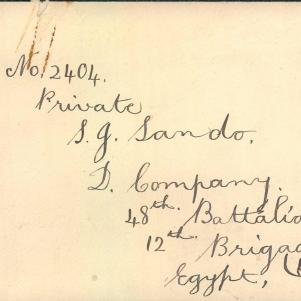 No. 2404.
Private
S. G. Sando.
D. Company.
48th. Battalio
12th. Brigad
Egypt,